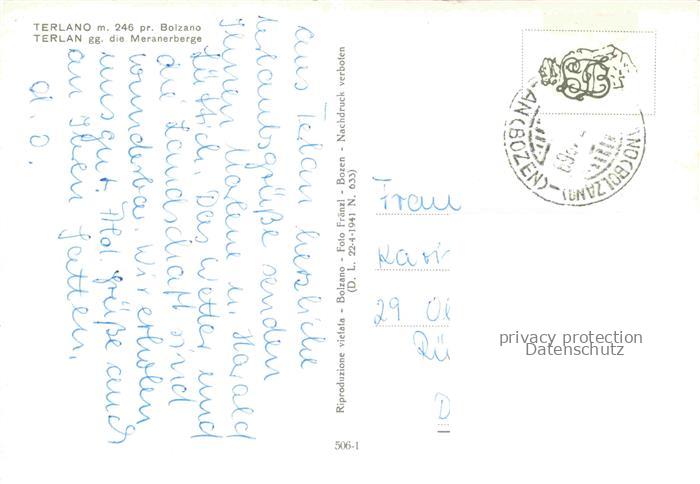 TERLANO m. 246 pr. Bolzano
TERLAN gg. die Meranerberge
aus Telan herzliche
Urlaubsgrüße senden
Ihnen Marlene u. Harald
Fürstlich. Das Wetter und
die Landschaft sind
wunderbar. Wir erholen
uns gut. Hbl. Grüße auch
an Ihren Gatten.
d. O.
Riproduzione vietata - Bolzano - Foto Fränzl - Bozen - Nachdruck verboten
(D. L. 22-4-1941 N. 633)
506-1
Frau
Karin
29 Ol
Rü
D
privacy protection
Datenschutz
(BOLZANO)
(BOZEN)